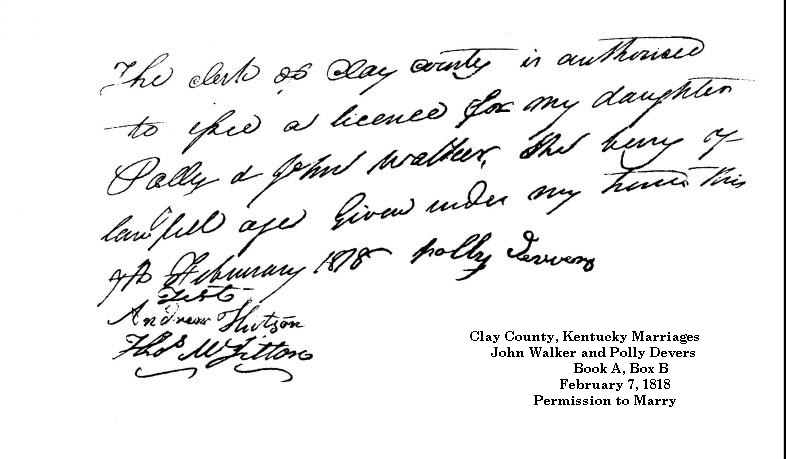 The clerk of Clay County is authorised
to issue a licence for my daughter
Polly & John Walker, she being of
lawfull age Given under my hand this
7th February 1818 Polly Devers
Test
Andrew Hutson
Thos
Clay County, Kentucky Marriages
John Walker and Polly Devers
Book A, Box B
February 7, 1818
Permission to Marry